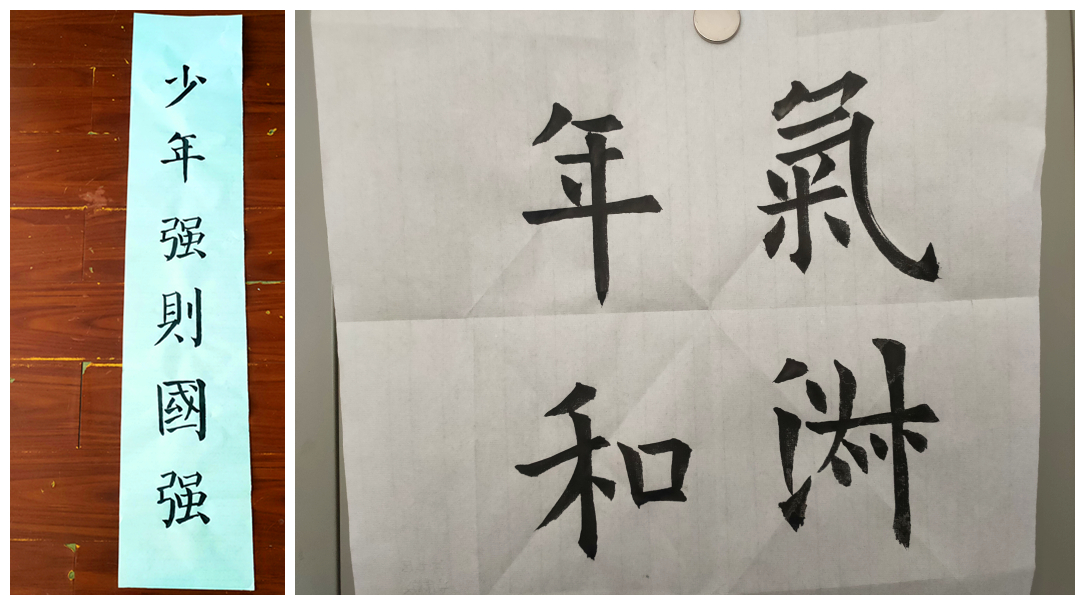 少年强則國强
氣淑
年和